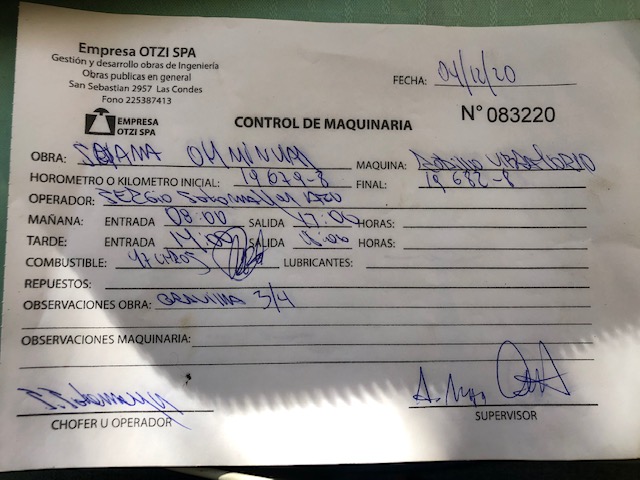 Empresa OTZI SPA
Gestión y desarrollo obras de Ingenieria
Obras publicas en general
San Sebastian 2957 Las Condes
Fono 225387413
FECHA: 04/12/20
EMPRESA
OTZI SPA
CONTROL DE MAQUINARIA
N° 083220
OBRA: MAQUINA: Rodillo
HOROMETRO O KILOMETRO INICIAL: 19679-8 FINAL: 19682-8
OPERADOR: SERGIO
MAÑANA: ENTRADA 08:00 SALIDA HORAS:
TARDE: ENTRADA 14:00 SALIDA HORAS:
COMBUSTIBLE: LUBRICANTES:
REPUESTOS:
OBSERVACIONES OBRA: GRAVILLA 3/4
OBSERVACIONES MAQUINARIA:
CHOFER U OPERADOR
SUPERVISOR